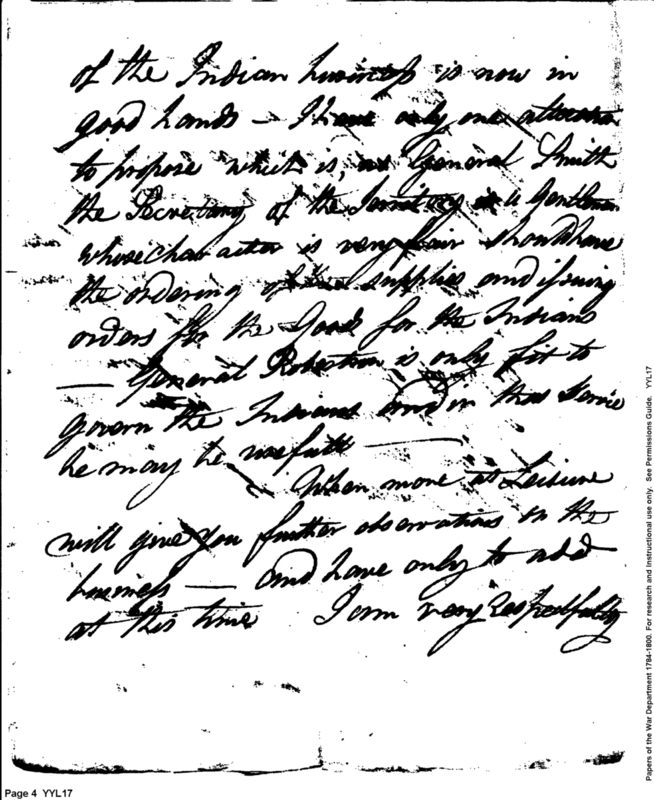 of the Indian business is now in
good hands — I have only one alteration
to propose which is, as General Smith
the Secretary of the Territory is a Gentleman
whose character is very fair should have
the ordering of the supplies and issuing
orders for the Goods for the Indians
— General Robertson is only fit to
govern the Indians and in that Service
he may be usefull —
When more at Leisure
will give you further observations on the
business — and have only to add
at this time I am very Respectfully
Papers of the War Department 1784-1800. For research and Instructional use only. See Permissions Guide. YYL17
Page 4 YYL17